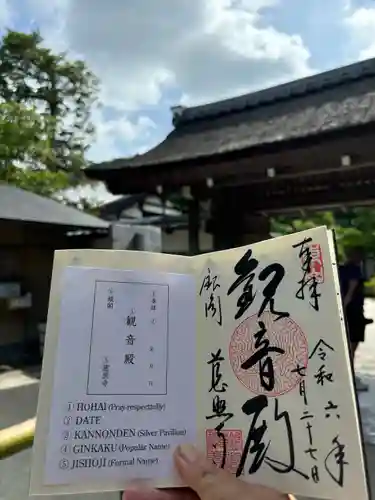 ①奉拝
②
月 日
③観音殿
④銀閣
⑤慈照寺
① HOHAI (Pray respectfully)
② DATE
③ KANNONDEN (Silver Pavilion)
④ GINKAKU (Popular Name)
⑤ JISHOJI (Formal Name)
奉拝
令和六年
七月二十七日
觀音殿
銀閣
慈照寺